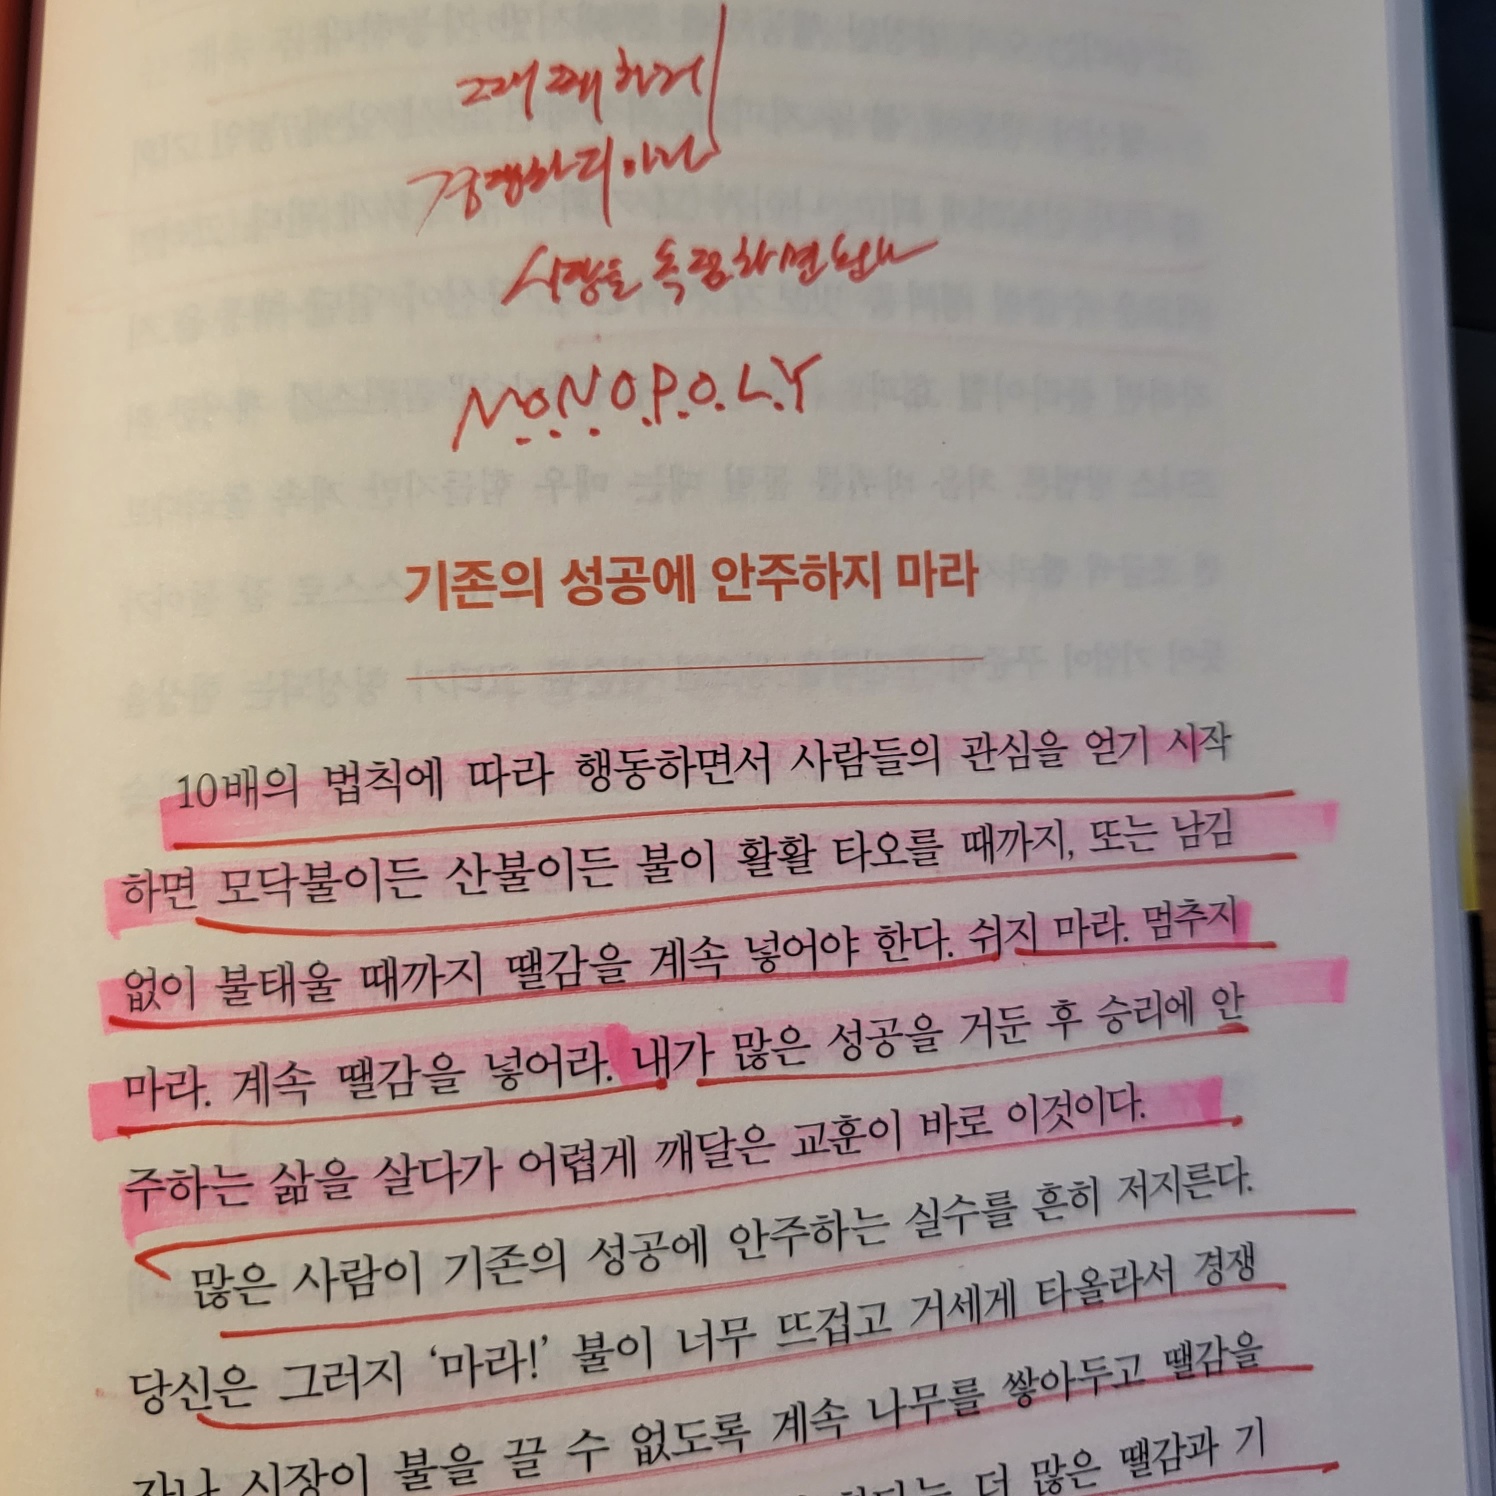 경쟁하지 말고
시장을 독점하면 된다
M.O.N.O.P.O.L.Y
기존의 성공에 안주하지 마라
10배의 법칙에 따라 행동하면서 사람들의 관심을 얻기 시작
하면 모닥불이든 산불이든 불이 활활 타오를 때까지, 또는 남김
없이 불태울 때까지 땔감을 계속 넣어야 한다. 쉬지 마라. 멈추지
마라. 계속 땔감을 넣어라. 내가 많은 성공을 거둔 후 승리에 안
주하는 삶을 살다가 어렵게 깨달은 교훈이 바로 이것이다.
많은 사람이 기존의 성공에 안주하는 실수를 흔히 저지른다.
당신은 그러지 ‘마라!’ 불이 너무 뜨겁고 거세게 타올라서 경쟁
자나 시장이 불을 끌 수 없도록 계속 나무를 쌓아두고 땔감을
더 많은 땔감과 기